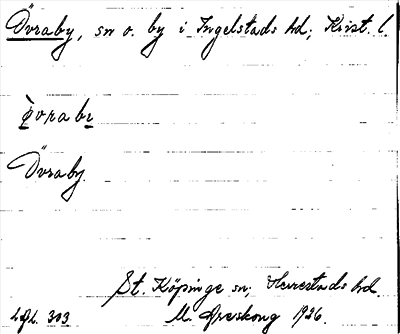 Övraby, sn o. by i Ingelstads hd; Krist. l.
Övraby.
St. Köpinge sn; Herrestads hd.
M. Areskong 1926.